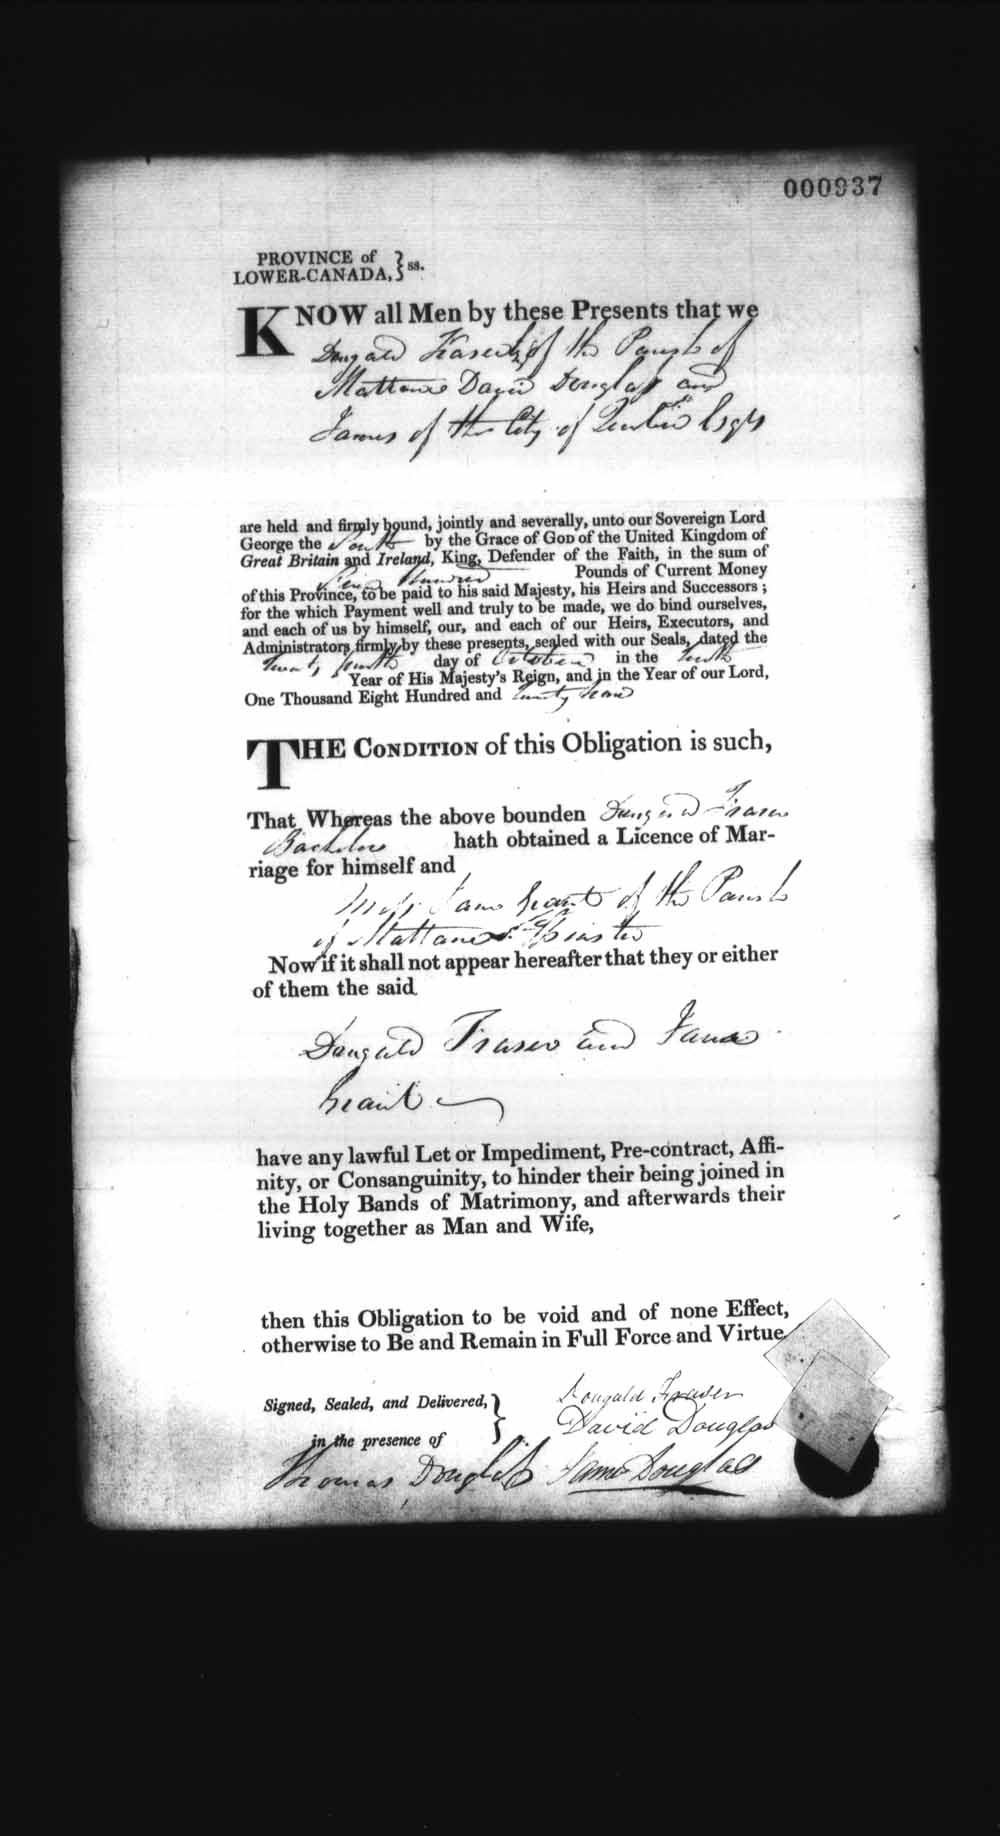 000937
PROVINCE of
LOWER-CANADA, } ss.
KNOW all Men by these Presents that we
Dougald Fraser of the Parish of
Mattane David Douglas and
James of the City of Quebec Esqrs
are held and firmly bound, jointly and severally, unto our Sovereign Lord
George the Fourth by the Grace of GOD of the United Kingdom of
Great Britain and Ireland, King, Defender of the Faith, in the sum of
Hundred Pounds of Current Money
of this Province, to be paid to his said Majesty, his Heirs and Successors;
for the which Payment well and truly to be made, we do bind ourselves,
and each of us by himself, our, and each of our Heirs, Executors, and
Administrators firmly by these presents, sealed with our Seals, dated the
Twenty fourth day of October in the Tenth
Year of His Majesty's Reign, and in the Year of our Lord,
One Thousand Eight Hundred and Twenty
THE CONDITION of this Obligation is such,
That Whereas the above bounden Dougald Fraser
Bachelor hath obtained a Licence of Mar-
riage for himself and
Miss Jane Grant of the Parish
of Mattane Spinster
Now if it shall not appear hereafter that they or either
of them the said
Dougald Fraser and Jane
Grant
have any lawful Let or Impediment, Pre-contract, Affi-
nity, or Consanguinity, to hinder their being joined in
the Holy Bands of Matrimony, and afterwards their
living together as Man and Wife,
then this Obligation to be void and of none Effect,
otherwise to Be and Remain in Full Force and Virtue
Signed, Sealed, and Delivered, }
in the presence of
Dougald Fraser
David Douglas
Thomas Douglas James Douglas